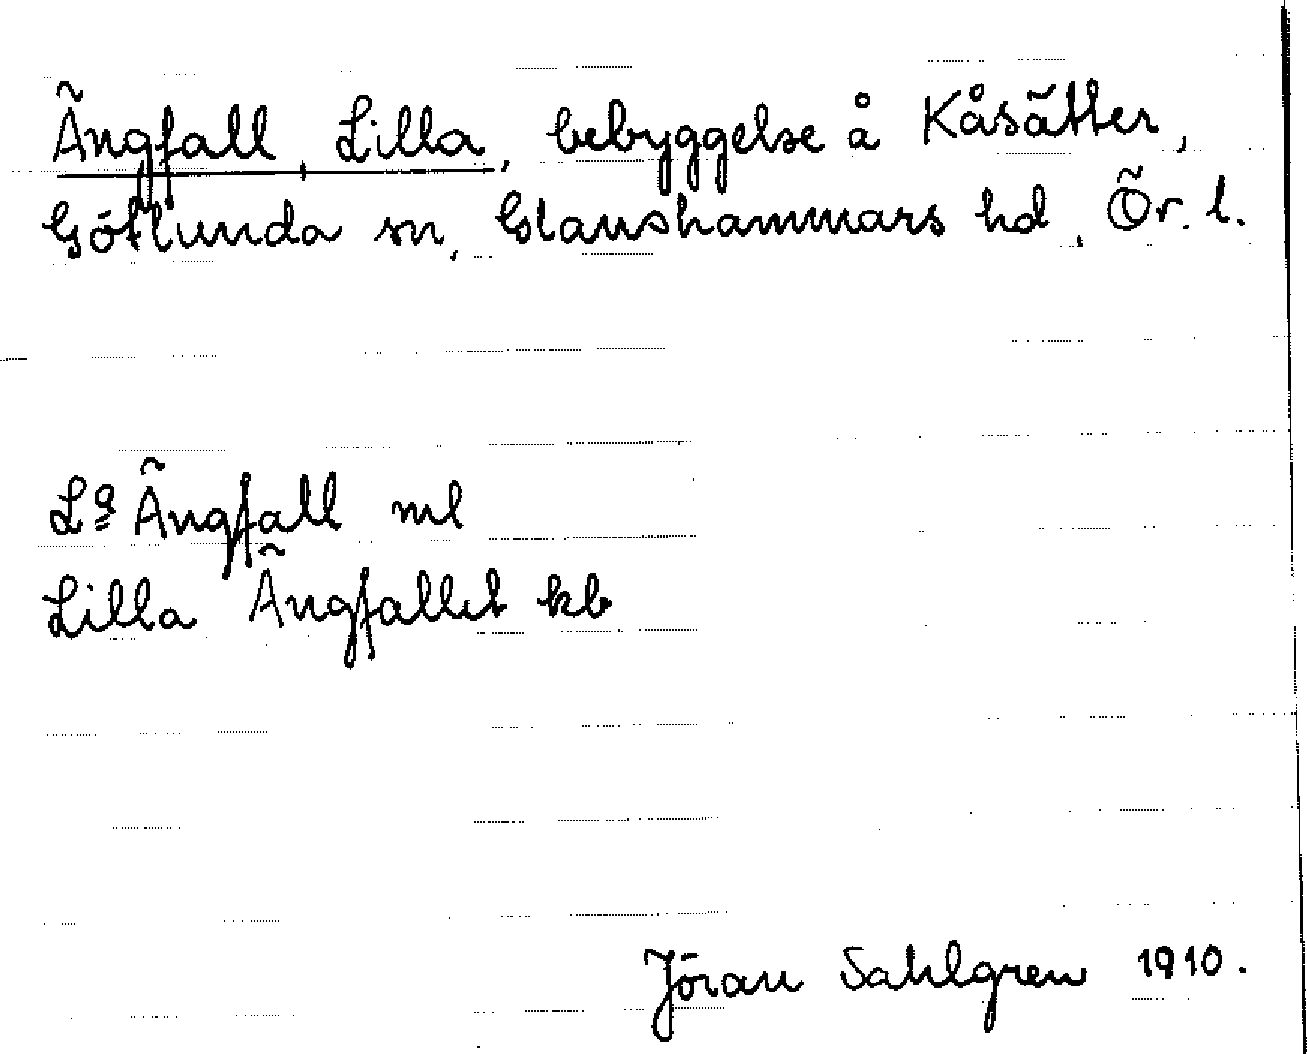 Ängfall, Lilla, bebyggelse å Kåsätter,
Götlunda sn, Glanshammars hd, Ör. l.
La Ängfall ml
Lilla Ängfallet kb
Jöran Sahlgren 1910.